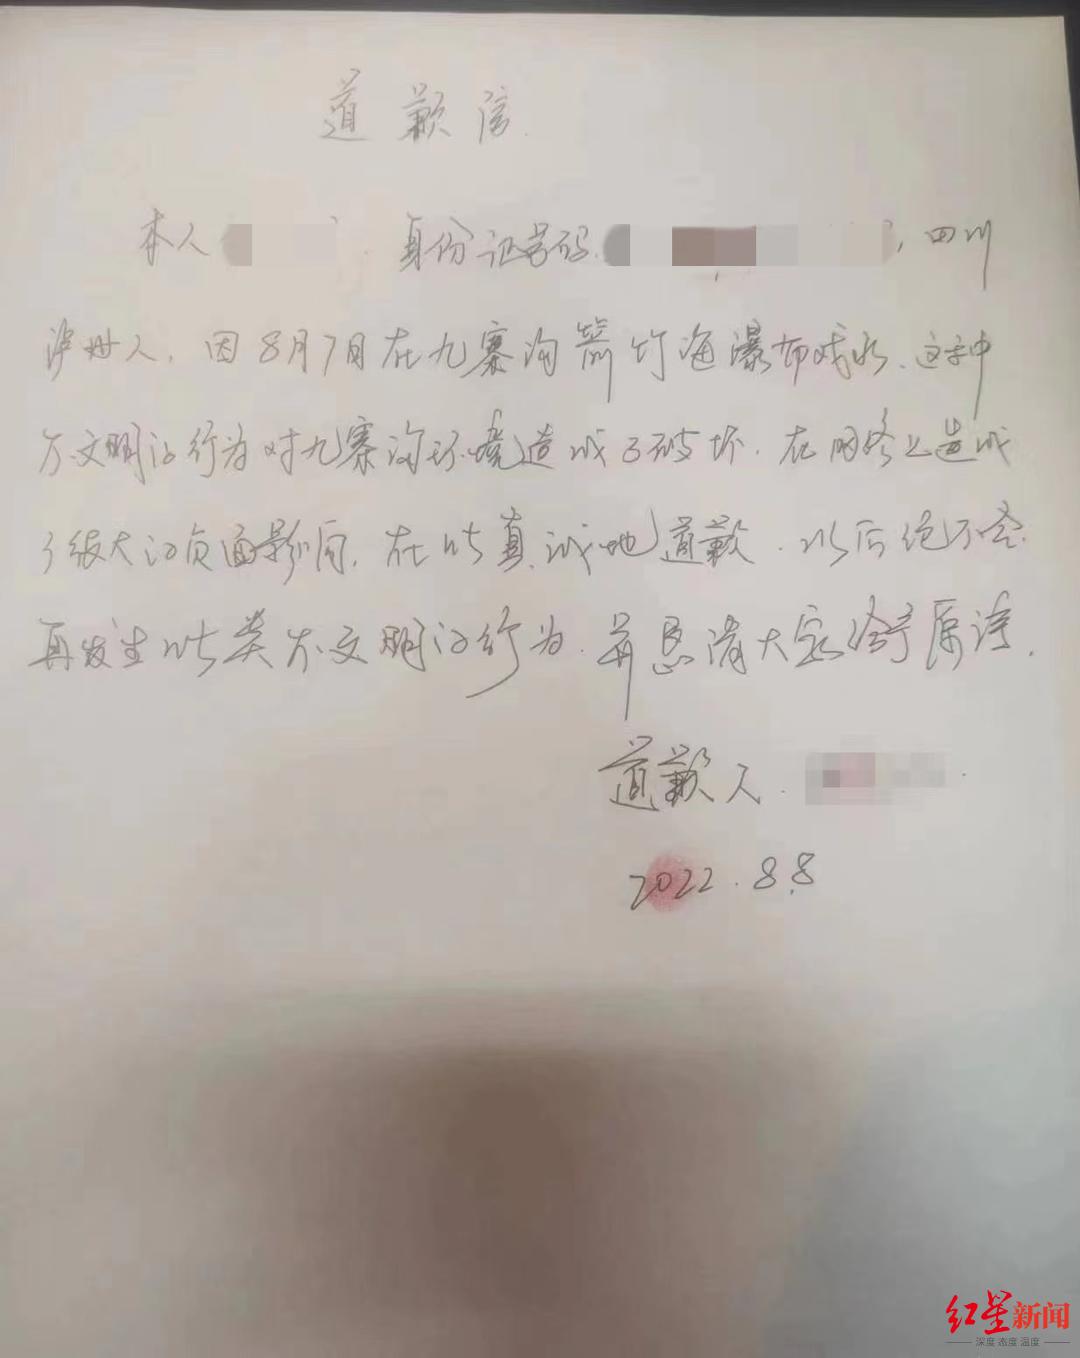 道歉信
本人 身份证号码 ,四川
泸州人,因8月7日在九寨沟箭竹海瀑布戏水、这种
不文明的行为对九寨沟环境造成了破坏.在网络上造成
了级大的负面影响,在此真诚地道歉.以后绝不会
再发生此类不文明的行为.并恳请大家给予原谅.
道歉人.
2022.8.8
红星新闻
深度 态度 温度